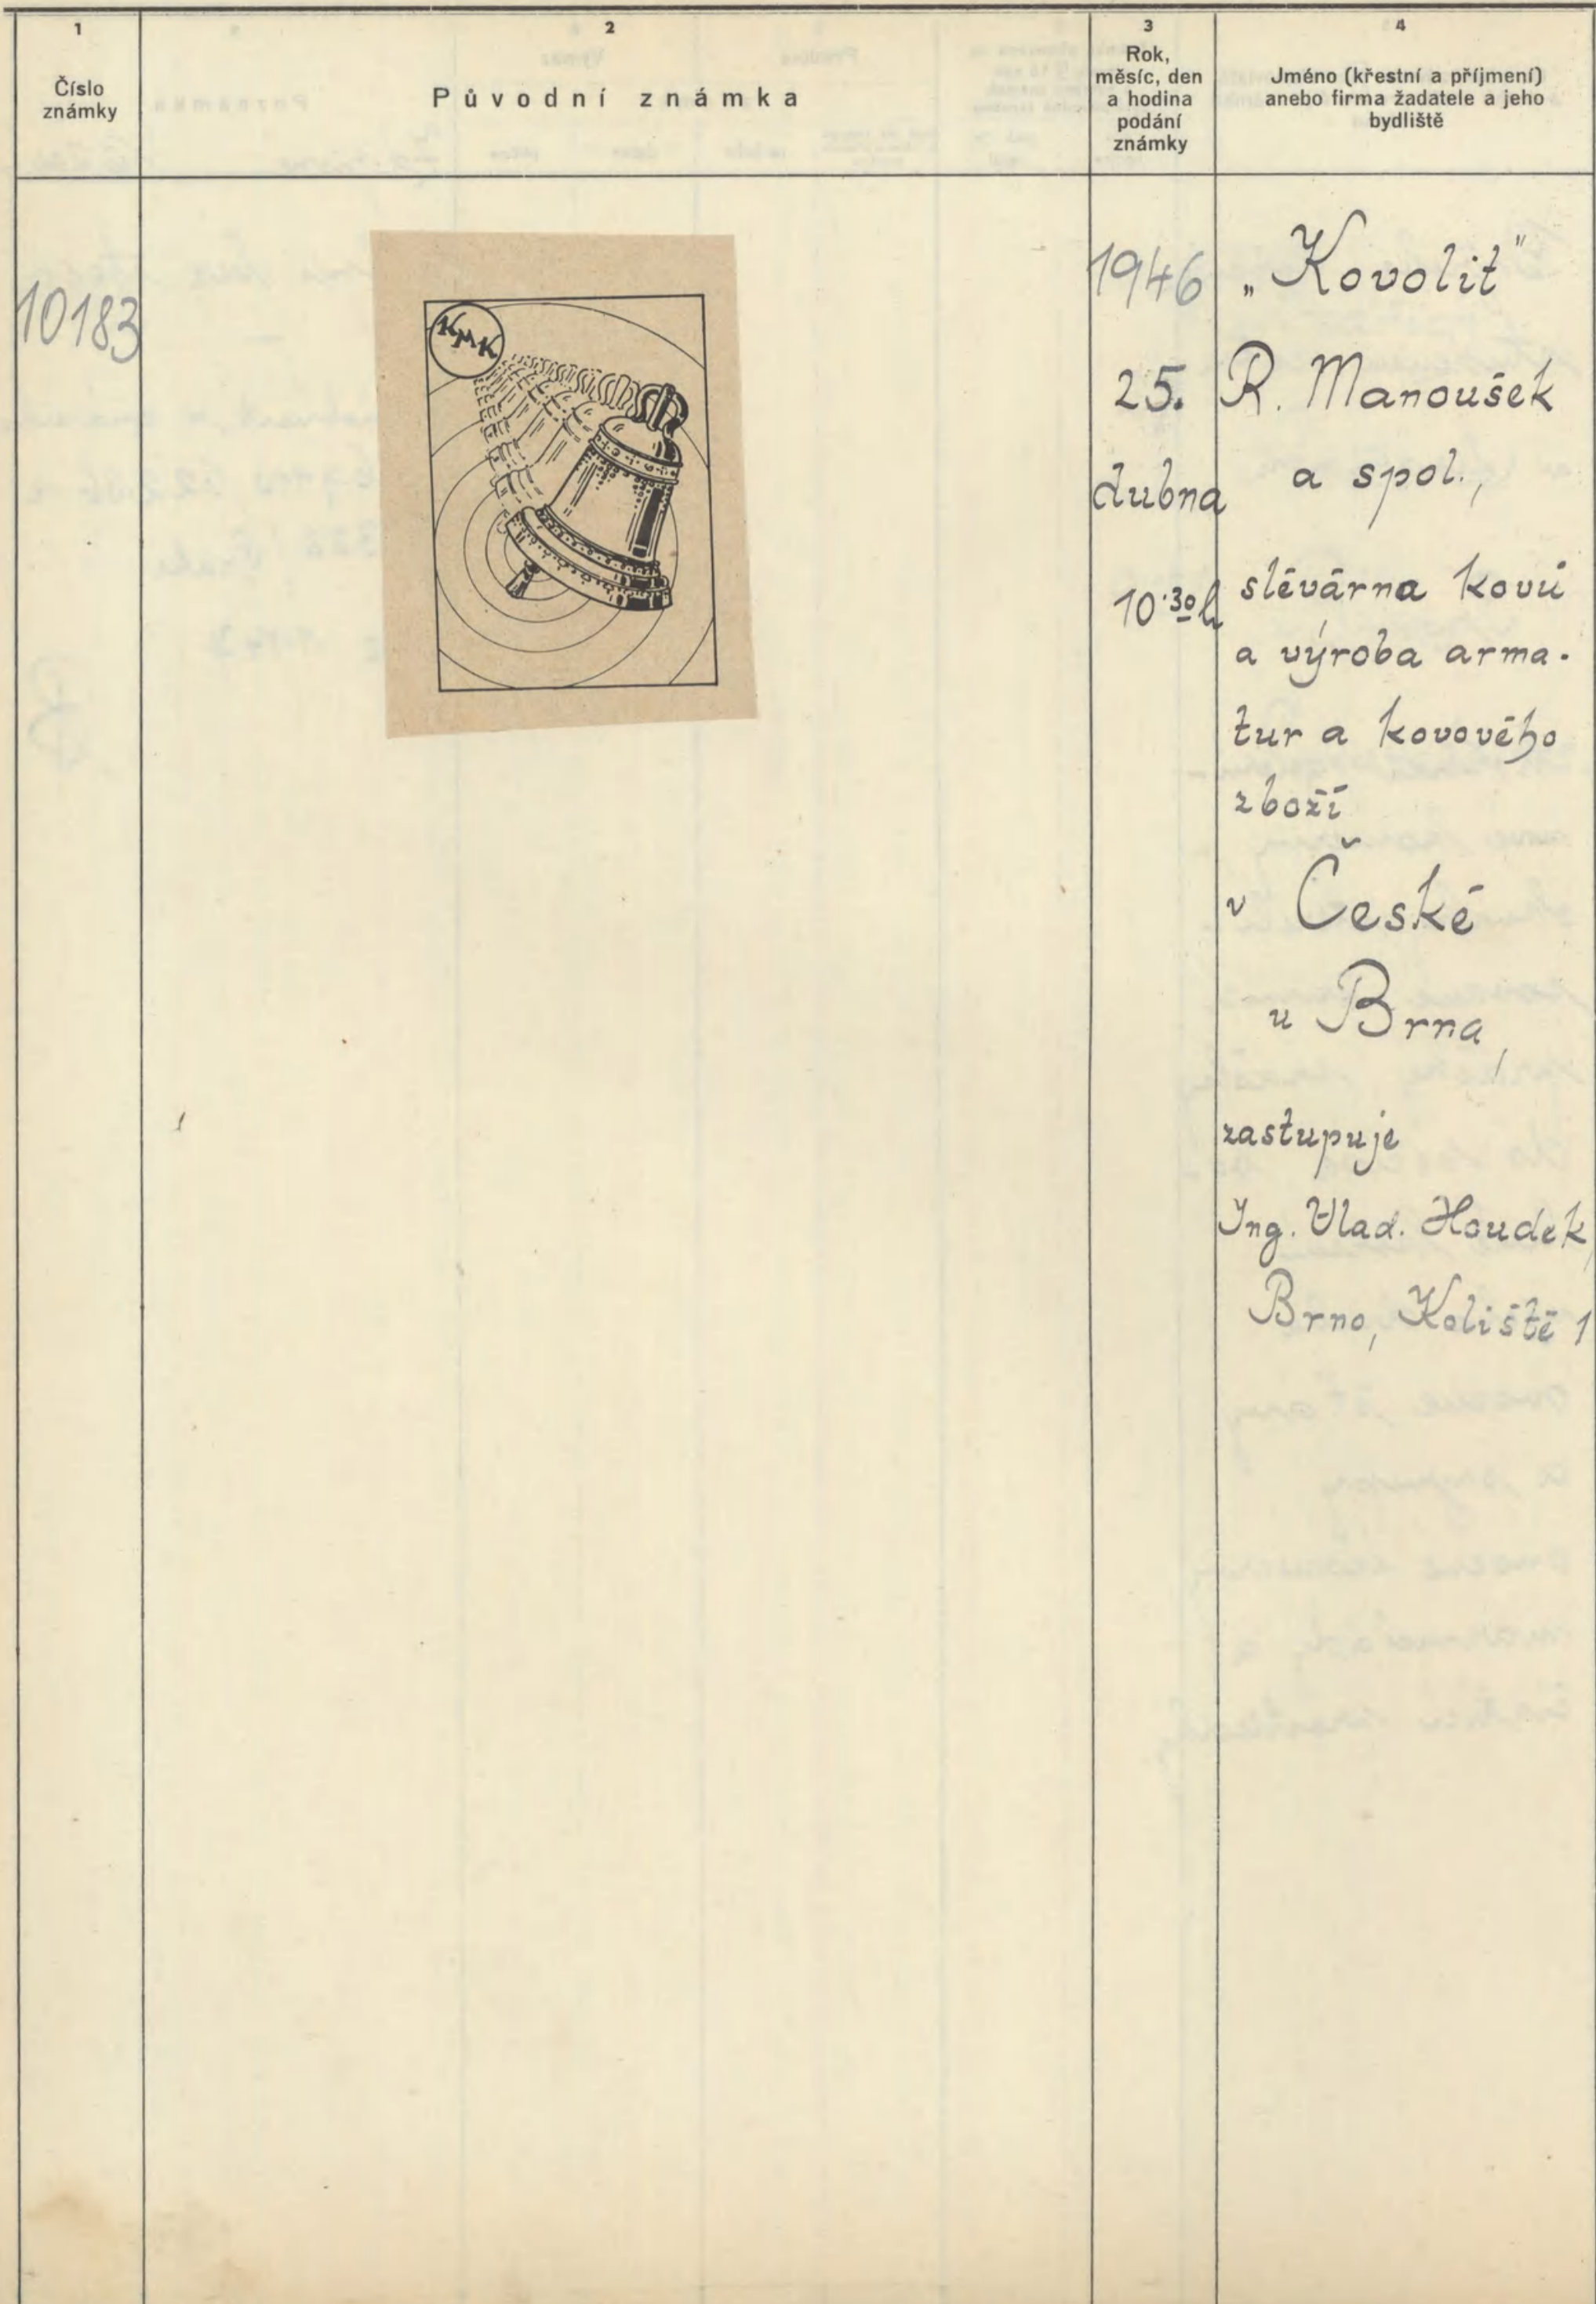 1
Číslo
známky
2
Původní známka
3
Rok,
měsíc, den
a hodina
podání
známky
4
Jméno (křestní a příjmení)
anebo firma žadatele a jeho
bydliště
10183
KMK
1946
25.
dubna
10·30 h
„Kovolit"
R. Manoušek
a spol.,
slévárna kovů
a výroba arma-
tur a kovového
zboží
v České
u Brna,
zastupuje
Ing. Vlad. Houdek,
Brno, Koliště 1